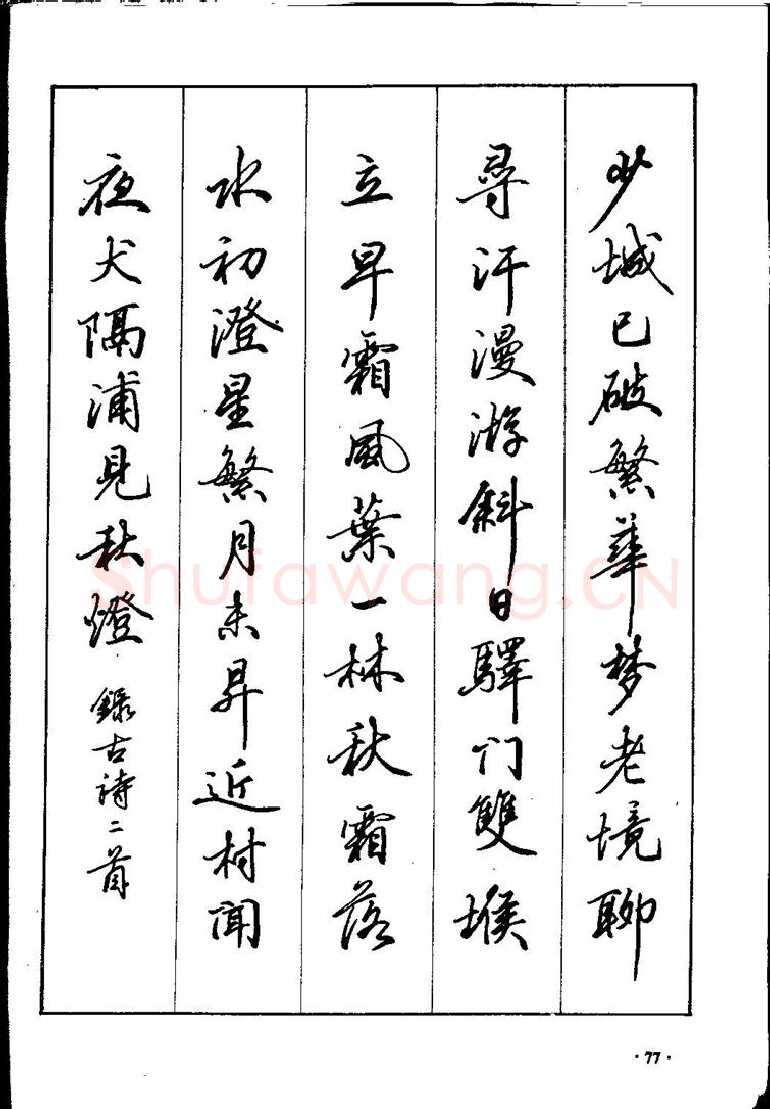 少城已破繁华梦老境聊
尋汗漫游斜日驛门雙堠
立早霜風葉一林秋霜落
水初澄星繁月未昇近村聞
夜犬隔浦見秋燈 録古詩二首
Shufawang.CN
·77·